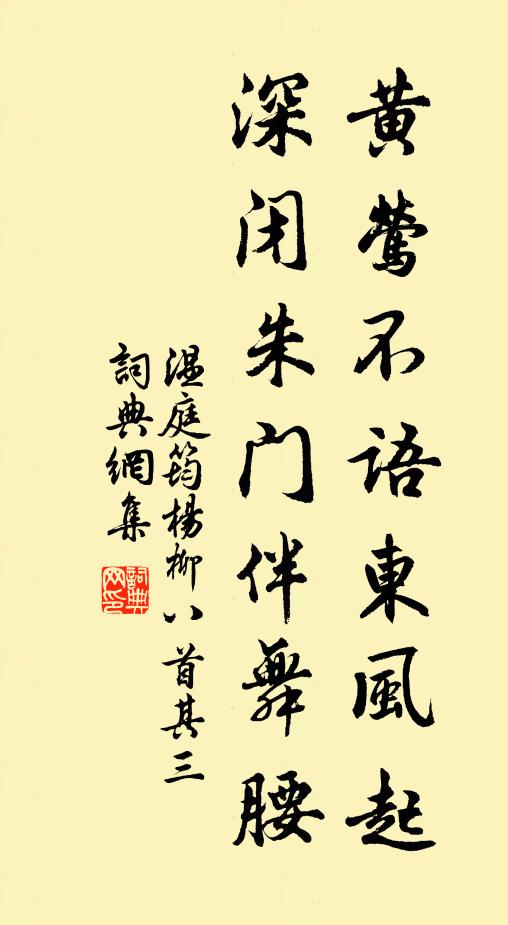 黄莺不语東風起
深闭朱门伴舞腰
温庭筠楊柳八首其三
詞典網集
詞典网印